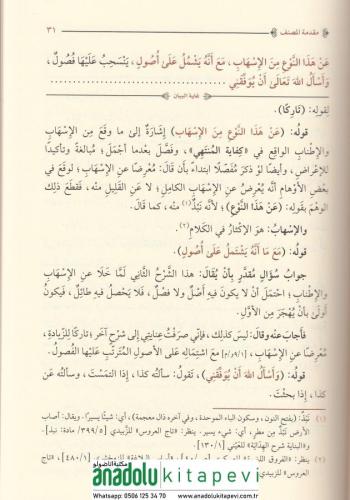 مقدمة المصنف
٣١
عَنْ هَذَا النَّوْعِ مِنَ الإِسْهَابِ، مَعَ أَنَّهُ يَشْتَمِلُ عَلَى أُصُولٍ، يَنْسَحِبُ عَلَيْهَا فُصُولٌ،
وَأَسْأَلُ اللهَ تَعَالَى أَنْ يُوَفِّقَنِي
غاية البيان
لقولِهِ: (تَارِكًا).
قولُهُ: (عَنْ هَذَا النَّوْعِ مِنَ الإِسْهَابِ) إشارَةٌ إلى ما وقَعَ مِن الإسْهابِ
والإطْنابِ الواقعِ في «كِفاية المُنْتَهِي»، وفصَّل بعدما أجْمَلَ؛ مُبالَغةً وتأكيدًا
للإعْراضِ، وأيضًا لوْ ذكَرَ مُفَصَّلًا ابتداءً بأن قالَ: مُعْرِضًا عن الإسْهابِ؛ لوقَع في
بعْضِ الأوْهامِ أنَّهُ يُعْرِضُ عن الإسْهابِ الكامِلِ؛ لا عَنِ القَلِيلِ منْه، فقَطعَ ذلك
الوهْمَ بقولِهِ: (عَنْ هَذَا النَّوْعِ)؛ لأنَّه نَبْذٌ(١) منْه، كما قالَ.
والإسْهابُ: هوَ الإكْثارُ في الكَلامِ(٢).
قولُهُ: (مَعَ مَا أَنَّهُ يَشْتَمِلُ عَلَى أُصُولٍ).
جوابُ سُؤالٍ مُقدَّرٍ بأنْ يُقالَ: هذا الشَّرْحُ الثَّاني لَمَّا خلَا عنِ الإسْهابِ
والإطْنابِ؛ احْتَمَلَ أنْ لا يكونَ فيه أصْلٌ ولا فصْلٌ، فلَا يَحْصلُ فيهِ طائِلٌ، فيكُونُ
أوْلَى بأنْ يُهْجَرَ مِن الأوَّلِ.
فأجابَ عنْه وقالَ: ليسَ كذلِك، فإنِّي صرَفْتُ عِنايتي إلى شرْحٍ آخَرَ؛ تارِكًا للزِّيادةِ،
مُعْرِضًا عنِ الإسْهابِ [١/٩و/م] مَعَ اشْتِمالِهِ على الأصولِ المُتَرتِّبِ عَلَيْها الفُصولُ.
قولُهُ: (وَأَسْأَلُ اللهَ أَنْ يُوَفِّقَنِي)، تَقُولُ: سأَلتُه كذا، إذا التَمَسْتَ، وسألْتُه عَن
كذا، إذا بحثْتَ.
(١) نَبْذٌ: (بفتح النون، وسكون الباء الموحدة، وفي آخره ذال معجمة)، أي: شيئًا يسيرًا. ويقال: أصاب
الأرض نَبْذٌ مِن مَطَرٍ، أي: شيء يسير. ينظر: «تاج العروس» للزَّبِيدي [٣٩٩/٥/ مادة: نبذ].
و«البناية شرح الهِدَايَة» للعَيْني [١٣٠/١].
anadolukitapevi
Whatsapp: 0506 125 34 70
www.anadolukitapevi.com.tr